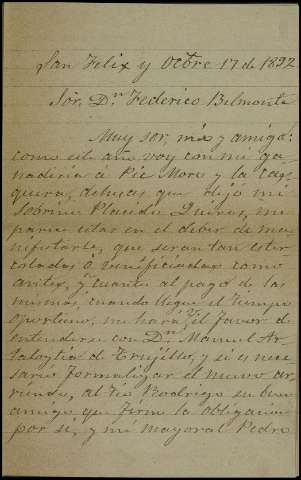 San Felix y Octbre 17 de 1892
Sor. Dn Federico Belmonte
Muy sor. mio y amigo:
como este año voy con mi ga
naderia á Pie Moro y la
dehesas que dejó mi
Sobrino Placido me
parece estar en el deber de ma
nifestarle, que seran tan
ó beneficiadas como
antes, y cuanto al pago de las
mismas cuando llegue el tiempo
oportuno, me hará V. el favor de
entenderse con Dn Manuel Ar
taloytia de Trujillo, y si es nece
sario formalizar el nuevo ar
riendo, al tio Rodrigo su buen
amigo que firme la obligacion
por si, y mi mayoral Pedro